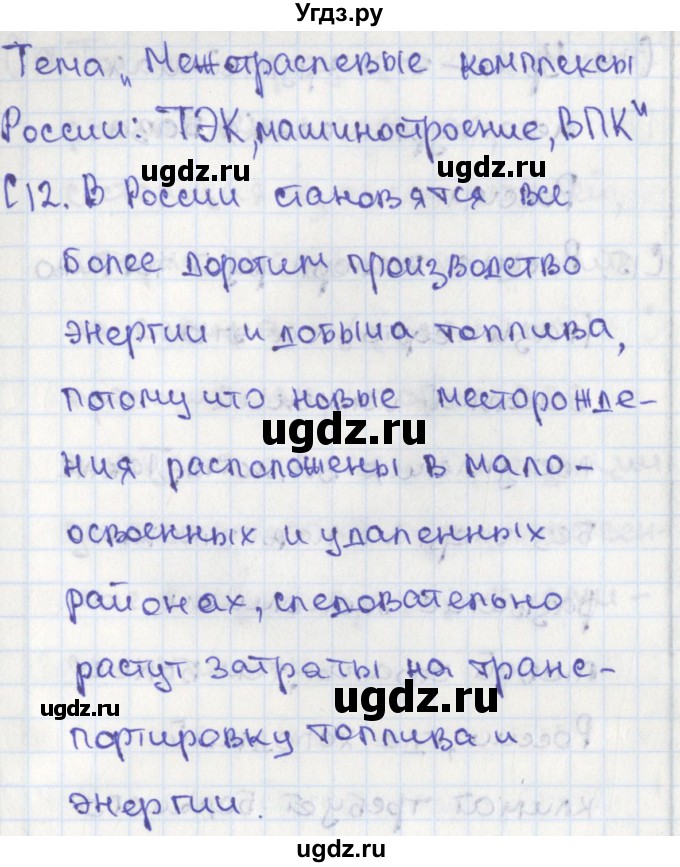 Угдз.ру
Тема „Межотраслевые комплексы
России: ТЭК, машиностроение, ВПК"
ugdz.ru
ugdz.ru
С12. В России становятся все
более дорогим производство
энергии и добыча топлива,
потому что новые месторожде-
ugdz.ru
ния расположены в мало-
освоенных и удаленных
районах, следовательно
растут затраты на транс-
ugdz.ru
ugdz.ru
портировку топлива и
энергии.
ugdz.ru
ugdz.ru